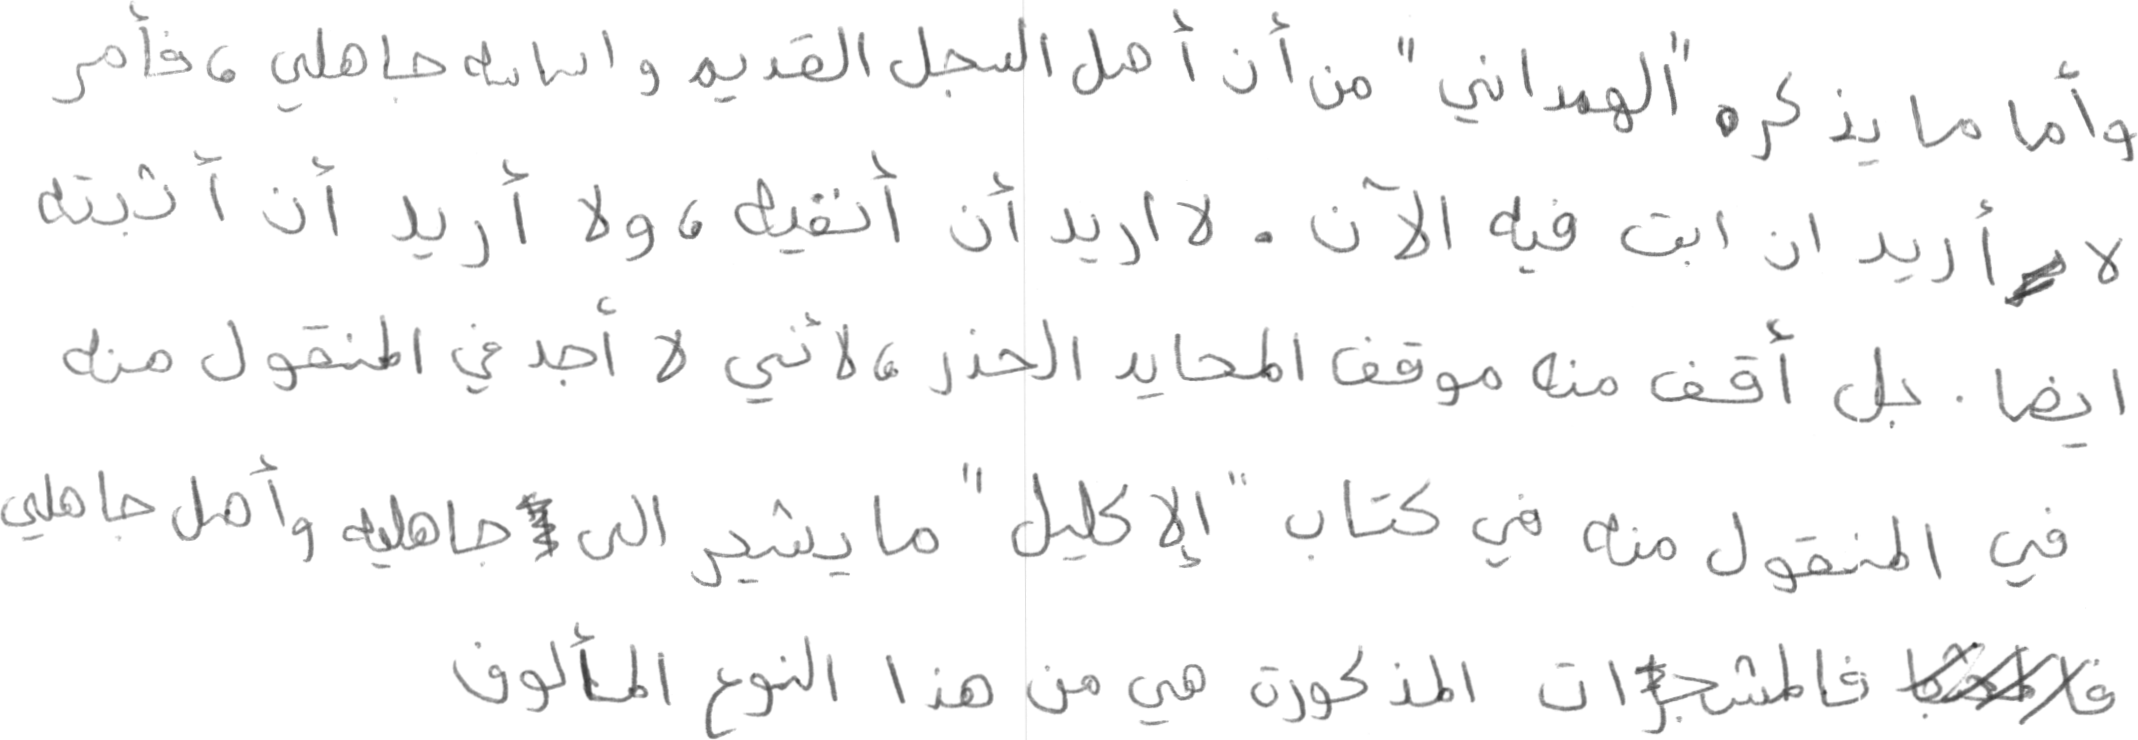 وأما ما يذكره "الهمداني" من أن أصل السجل القديم واساسه جاهلي، فأمر
لا أريد ان ابت فيه الآن. لا اريد أن أنفيه، ولا أريد أن أثبته
ايضا. بل أقف منه موقف المحايد الحذر، لأنني لا أجد في المنقول منه
في المنقول منه في كتاب "الإكليل" ما يشير الى جاهليه وأصل جاهلي
فالمشجرات المذكورة هي من هذا النوع المألوف